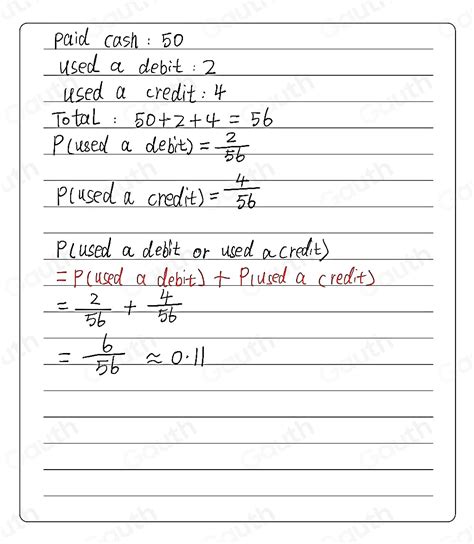 paid cash : 50
used a debit : 2
used a credit : 4
Total : 50+2+4 = 56
P(used a debit) = 2/56
P(used a credit) = 4/56
P(used a debit or used a credit)
= P(used a debit) + P(used a credit)
= 2/56 + 4/56
= 6/56 ≈ 0.11